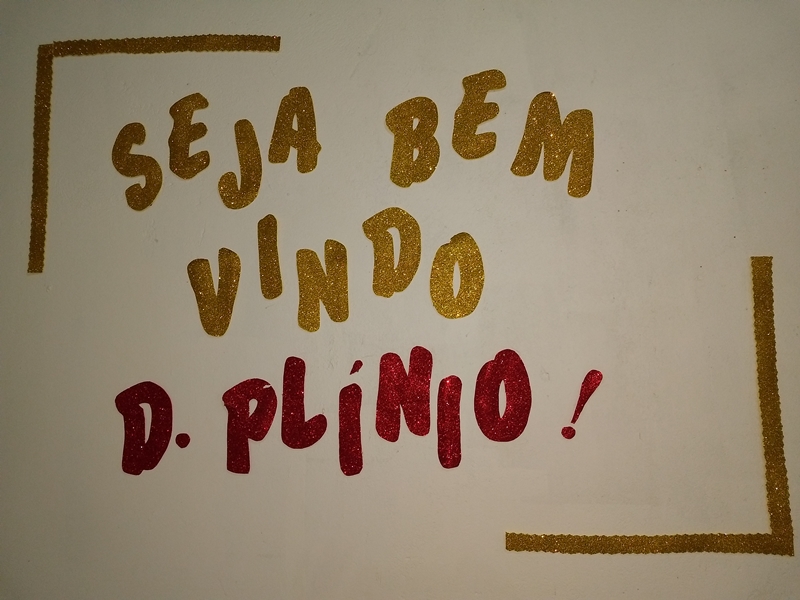 SEJA BEM
VINDO
D. PLÍNIO!